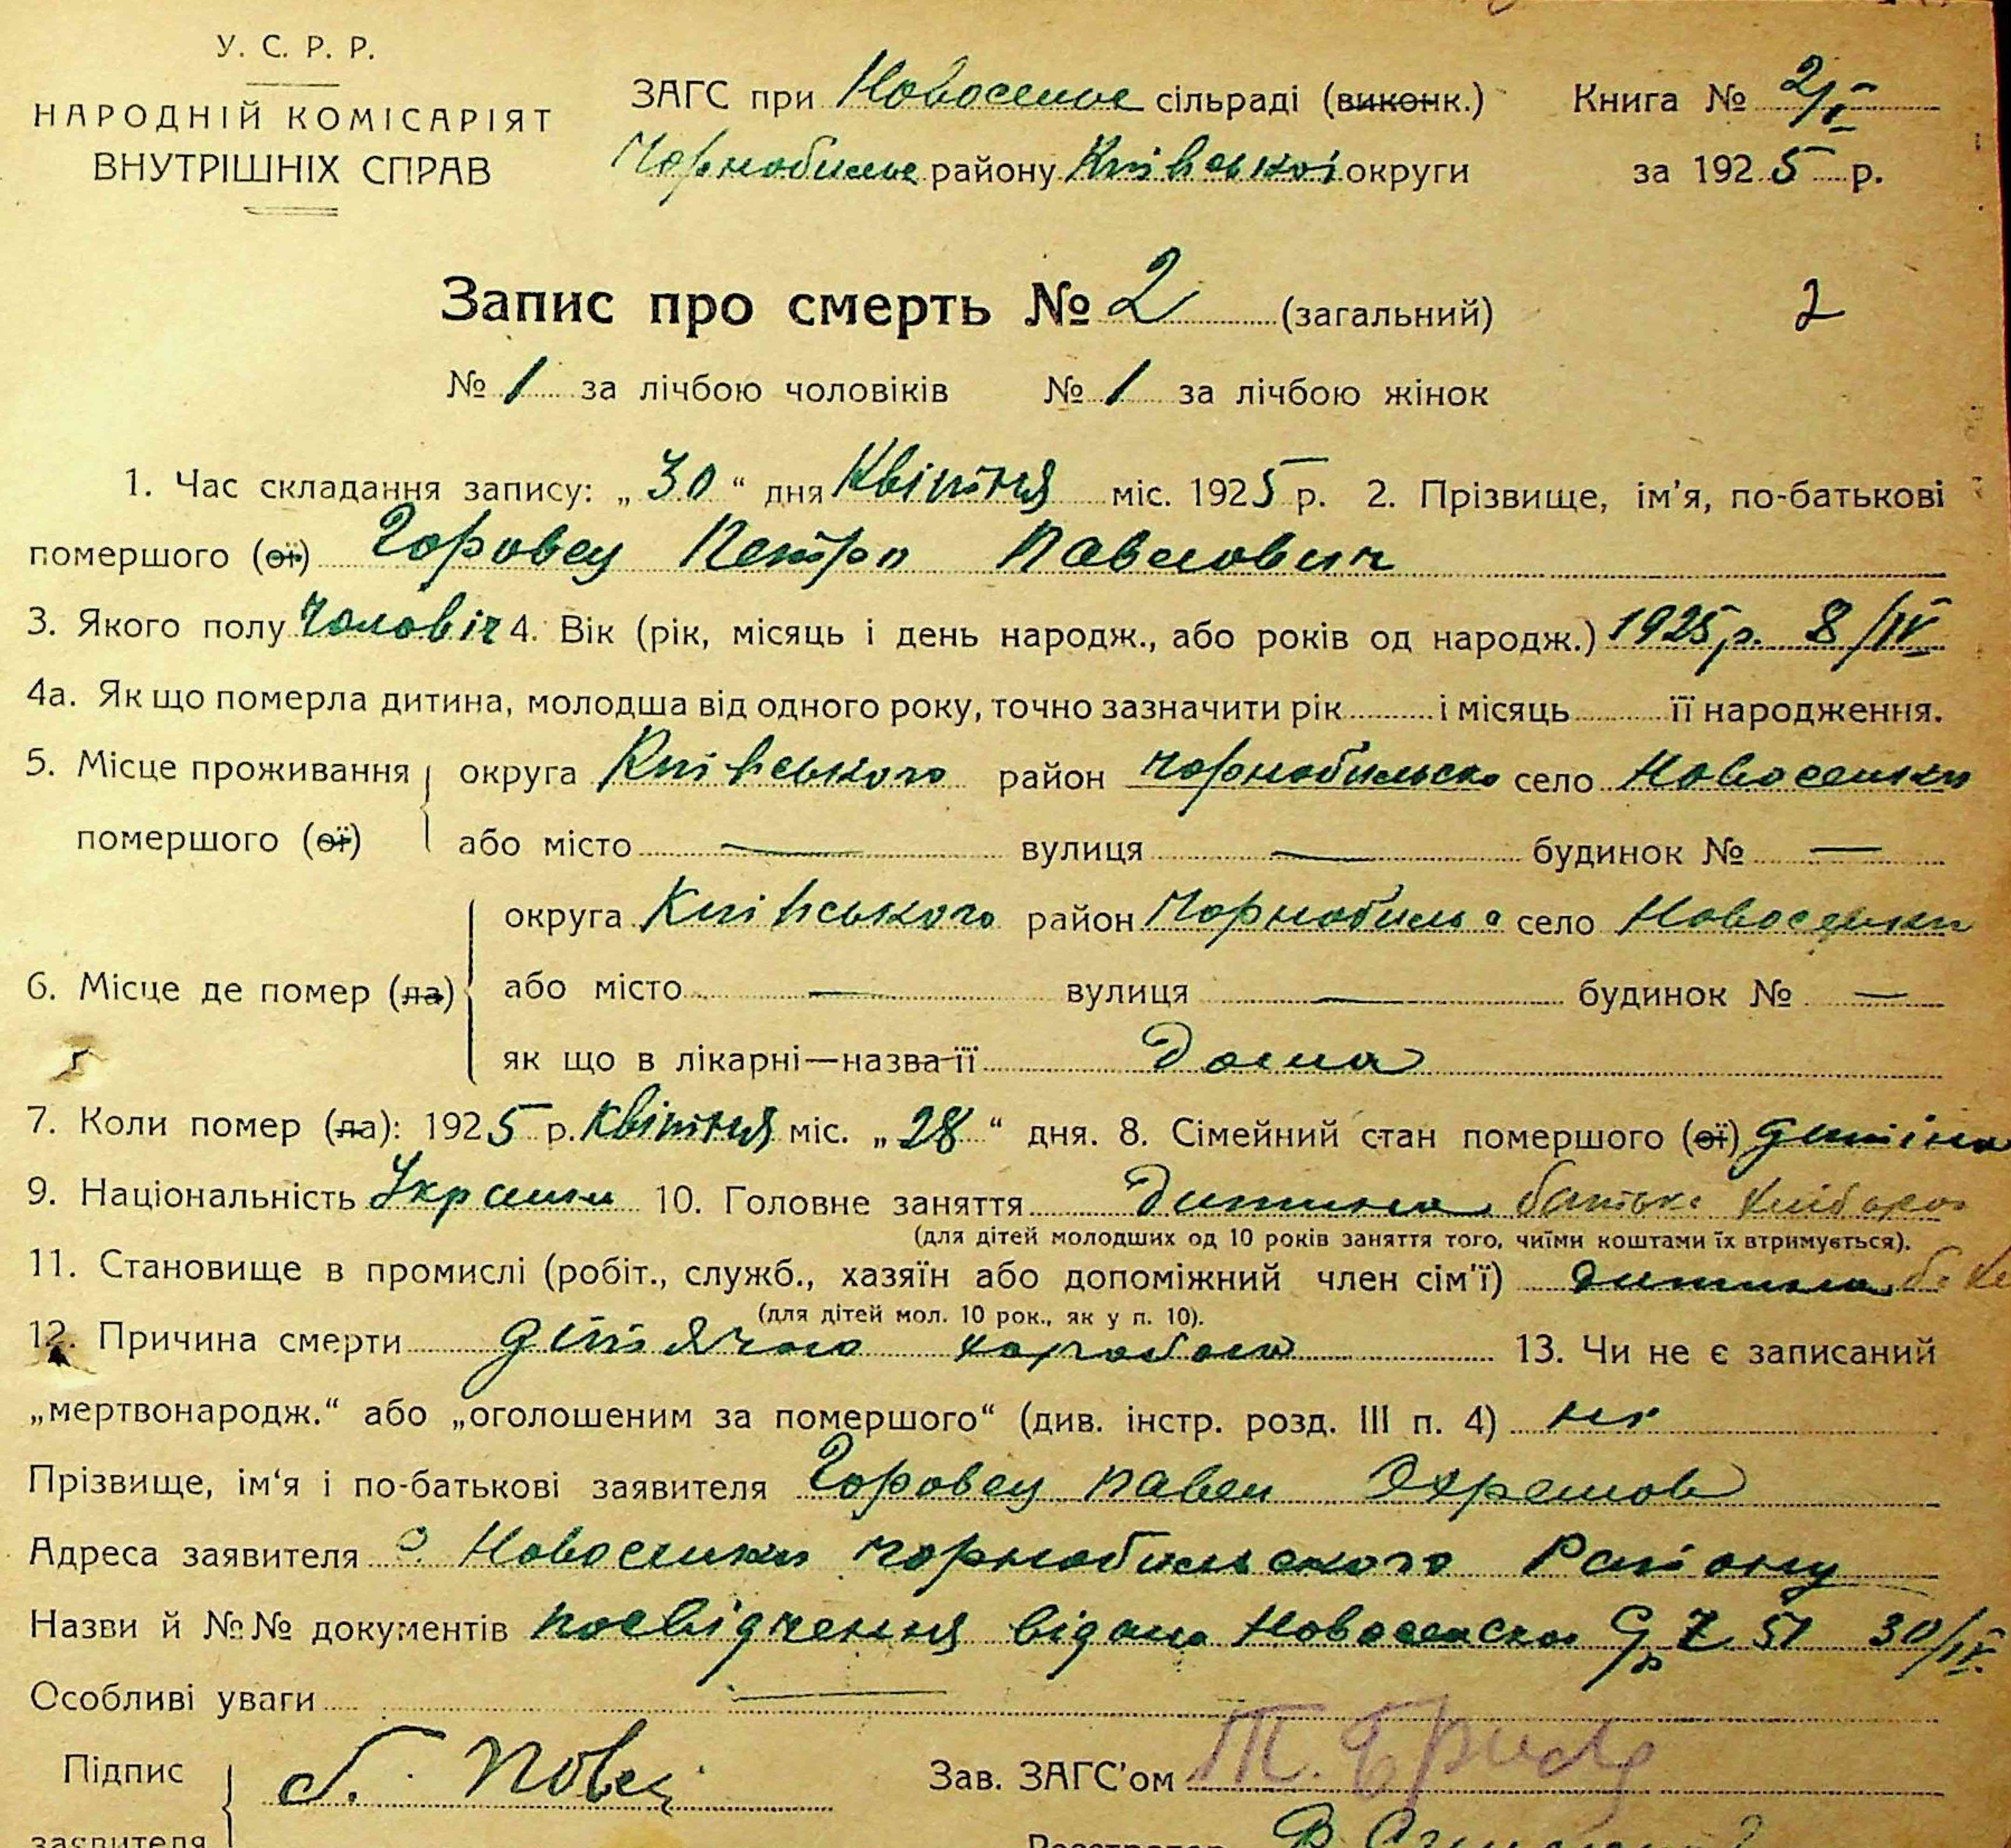 У. С. Р. Р.
НАРОДНІЙ КОМІСАРІЯТ
ВНУТРІШНІХ СПРАВ
ЗАГС при сільраді (виконк.)
району Київської округи
Книга №
за 1925 р.
Запис про смерть № 2 (загальний)
2
№ 1 за лічбою чоловіків № 1 за лічбою жінок
1. Час складання запису: „30“ дня Квітня міс. 1925 р. 2. Прізвище, ім'я, по-батькові
помершого (ої) Горовец Петро Павлович
3. Якого полу Чоловіч 4. Вік (рік, місяць і день народж., або років од народж.) 1925 р. 8/IV
4а. Як що померла дитина, молодша від одного року, точно зазначити рік і місяць її народження.
5. Місце проживання
помершого (ої)
округа Київського район Чорнобильско село Новоселки
або місто — вулиця — будинок № —
6. Місце де помер (ла)
округа Київського район село Новоселки
або місто — вулиця — будинок № —
як що в лікарні—назва її Дома
7. Коли помер (ла): 1925 р. Квітня міс. „28“ дня. 8. Сімейний стан помершого (ої) дитина
9. Національність 10. Головне заняття Дитина батько
(для дітей молодших од 10 років заняття того, чиїми коштами їх втримується).
11. Становище в промислі (робіт., служб., хазяїн або допоміжний член сім'ї) дитина
(для дітей мол. 10 рок., як у п. 10).
12. Причина смерти 13. Чи не є записаний
„мертвонародж.“ або „оголошеним за помершого“ (див. інстр. розд. III п. 4)
Прізвище, ім'я і по-батькові заявителя Горовец Павел
Адреса заявителя с. Новоселки Чорнобильского Району
Назви й №№ документів посвідчення 51 30/IV
Особливі уваги —
Підпис
заявителя
Зав. ЗАГС'ом
Реєстратор